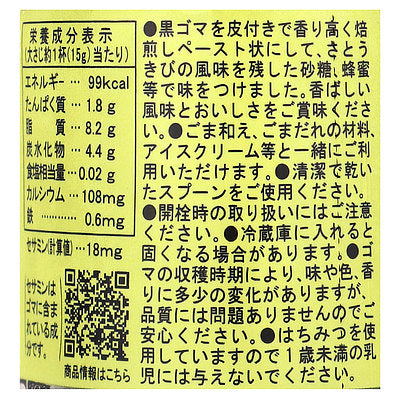 栄養成分表示
(大さじ約1杯(15g)当たり)
エネルギー… 99kcal
たんぱく質… 1.8 g
脂質… 8.2 g
炭水化物… 4.4 g
食塩相当量… 0.02 g
カルシウム… 108mg
鉄………… 0.6mg
セサミン(計算値)…18mg
セサミンは
ゴマに含ま
れている成
分です。
商品情報はこちら
●黒ゴマを皮付きで香り高く焙
煎しペースト状にして、さとう
きびの風味を残した砂糖、蜂蜜
等で味をつけました。香ばしい
風味とおいしさをご賞味くださ
い。●ごま和え、ごまだれの材料、
アイスクリーム等と一緒にご利
用いただけます。●清潔で乾い
たスプーンをご使用ください。
●開栓時の取り扱いにはご注意
ください。●冷蔵庫に入れると
固くなる場合があります。●ゴ
マの収穫時期により、味や色、香
りに多少の変化がありますが、
品質には問題ありませんのでご
安心ください。●はちみつを使
用していますので1歳未満の乳
児には与えないでください。